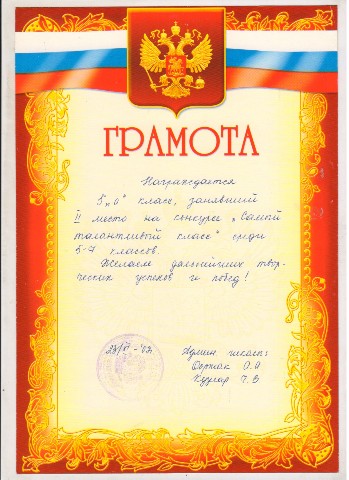 ГРАМОТА
Награждается
5 „о" класс, занявший
II место на конкурсе „Самый
талантливый класс" среди
5-7 классов.
Желаем дальнейших твор-
ческих успехов и побед!
Админ